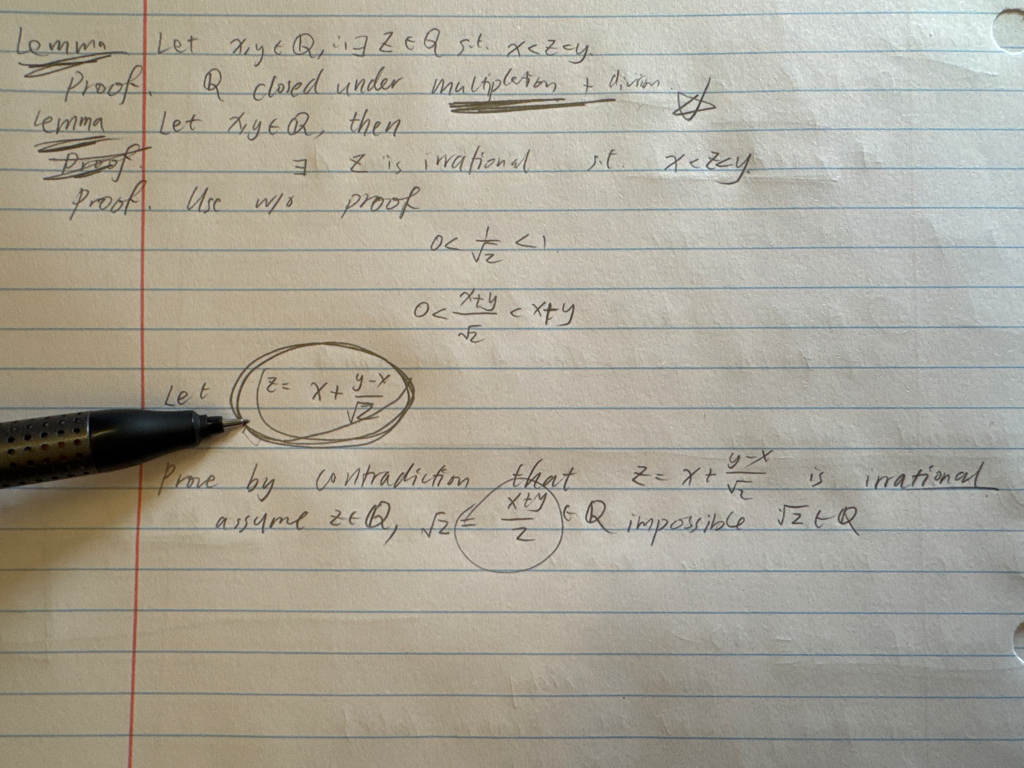 Lemma Let x,y ∈ Q, ∴ ∃ Z ∈ Q s.t. x<z<y.
Proof. Q closed under multipletion + divion
Lemma Let x,y ∈ Q, then
Proof ∃ Z is irrational s.t. x<z<y.
Proof. Use w/o proof
0 < 1/√2 < 1
0 < (x+y)/√2 < x+y
Let z = x + (y-x)/√2
Prove by contradiction that z = x + (y-x)/√2 is irrational
assume z ∈ Q, √2 = (x+y)/2 ∈ Q impossible √2 ∈ Q